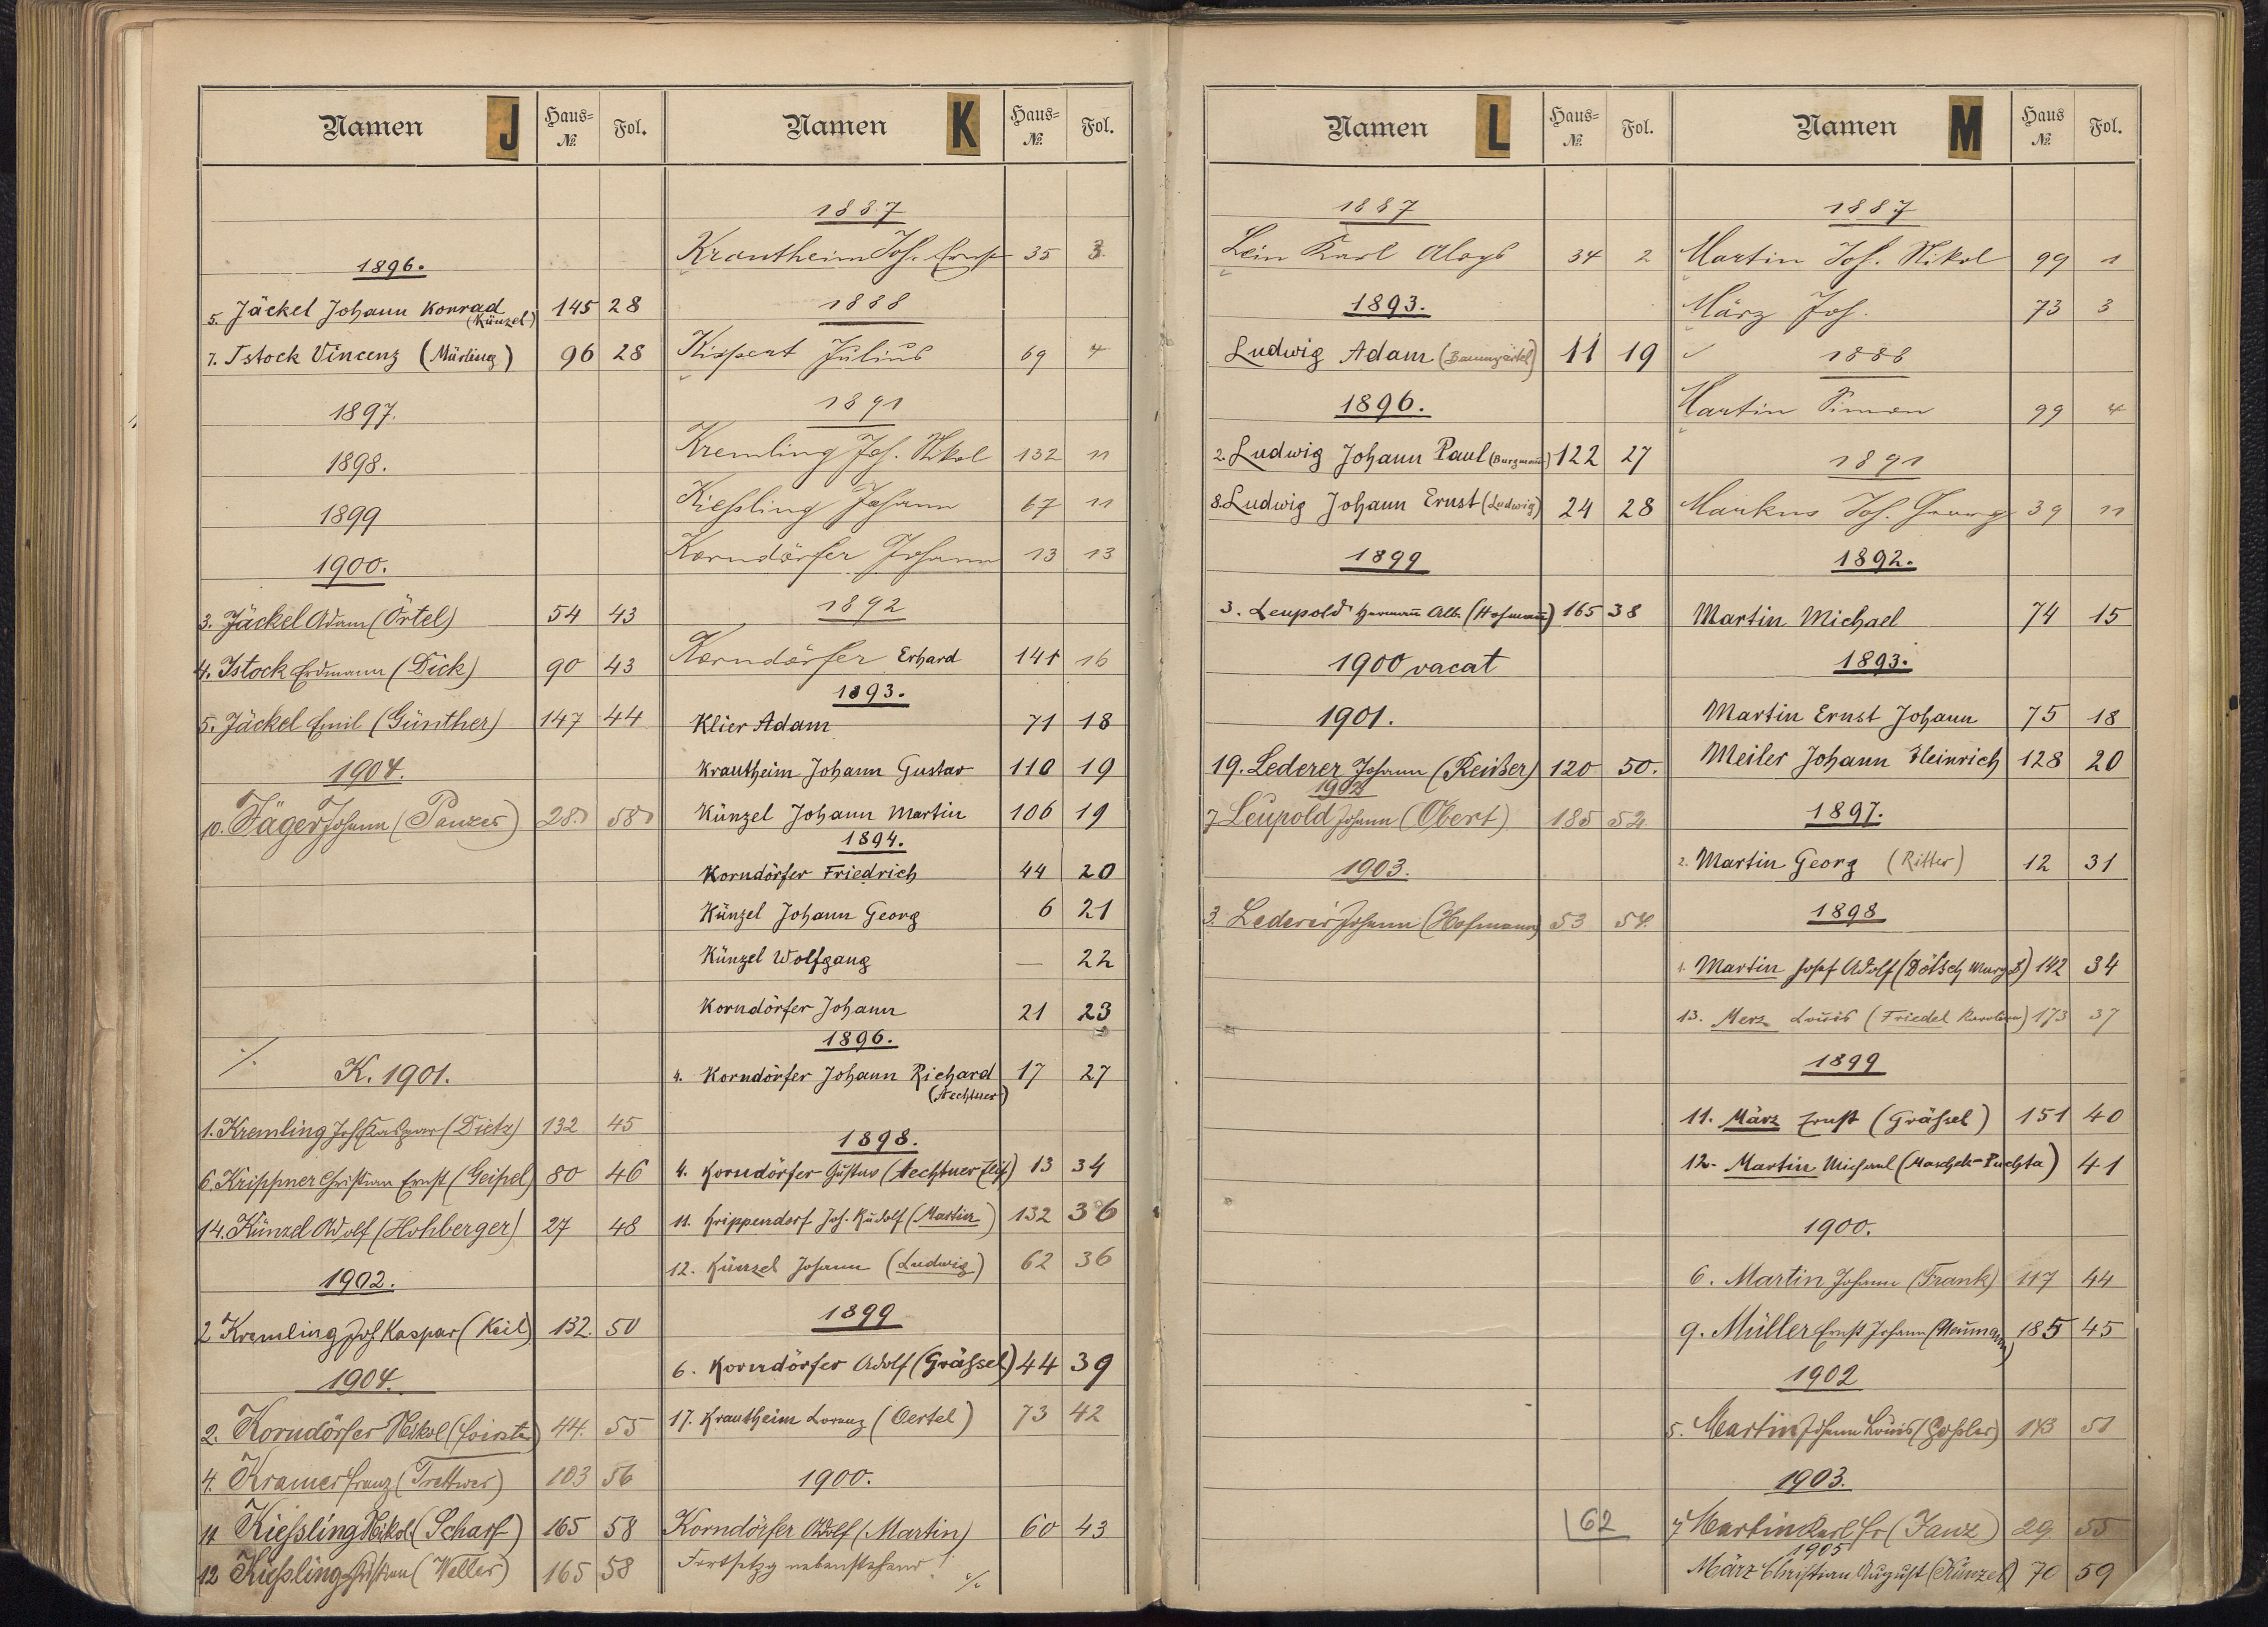 Namen J Haus= № Fol.
1896.
5. Jäckel Johann Konrad 145 28
(Künzel)
7. Istock Vincenz (Märling) 96 28
1897.
1898.
1899
1900.
3. Jäckel Adam (Örtel) 54 43
4. Istock Erdmann (Dick) 90 43
5. Jäckel Emil (Günther) 147 44
1904.
10. Jäger Johann (Panzer) 28. 58
⁒ K. 1901.
1. Kremling Joh Kaspar (Dietz) 132 45
6. Krippner Christian Ernst (Geipel) 80 46
14. Künzel Adolf (Hohberger) 27 48
1902.
2 Kremling Joh Kaspar (Keil) 132. 50
1904.
2. Korndörfer Nikol 44. 55
4. Kramer Franz (Trettwer) 103 56
11 Kießling Nikol. (Scharf) 165 58
12 Kießling Christian (Weller) 165 58
Namen K Haus= № Fol.
1887
Krautheim Joh. Ernst 35 3
1888
Kispert Julius 69 4
1891
Kremling Joh. Nikol 132 11
Kießling Johann 67 11
Korndörfer Johann 13 13
1892
Korndörfer Erhard 141 16
1893.
Klier Adam 71 18
Krautheim Johann Gustav 110 19
Künzel Johann Martin 106 19
1894.
Korndörfer Friedrich 44 20
Künzel Johann Georg 6 21
Künzel Wolfgang — 22
Korndörfer Johann 21 23
1896.
4. Korndörfer Johann Richard 17 27
(Aechtner)
1898.
4. Korndörfer Gustav (Aechtner) 13 34
11. Krippendorf Joh. Rudolf (Martin) 132 36
12. Künzel Johann (Ludwig) 62 36
1899
6. Korndörfer Adolf (Gräßel) 44 39
17. Krautheim Lorenz (Oertel) 73 42
1900.
Korndörfer Adolf (Martin) 60 43
Fortsetzg nebenstehend! ⁒
Namen L Haus= № Fol.
1887
Lein Karl Aloys 34 2
1893.
Ludwig Adam (Baumgärtel) 11 19
1896.
2. Ludwig Johann Paul (Burgmann) 122 27
8. Ludwig Johann Ernst (Ludwig) 24 28
1899
3. Leupold Hermann Alb. (Hofmann) 165 38
1900 vacat
1901.
19. Lederer Johann (Reußer) 120 50.
1902
7 Leupold Johann (Obert) 185 52
1903.
3. Lederer Johann (Hofmann) 53 54.
62
Namen M Haus № Fol.
1887
Martin Joh. Nikol 99 1
März Joh. 73 3
1888
Martin Simon 99 4
1891
Markus Joh. Georg 39 11
1892.
Martin Michael 74 15
1893.
Martin Ernst Johann 75 18
Meiler Johann Heinrich 128 20
1897.
2. Martin Georg (Ritter) 12 31
1898
1. Martin Josef Adolf (Dötsch) 142 34
13. Merz Louis (Friedel Karoline) 173 37
1899
11. März Ernst (Gräßel) 151 40
12. Martin Michael (Maschek-Puchta) 41
1900.
6. Martin Johann (Frank) 117 44
9. Müller Ernst Johann (Neumann) 185 45
1902
5. Martin Johann Louis (Goßler) 143 51
1903.
7 Martin Karl Fr (Janz) 29. 55
1905
März Christian August (Künzel) 70 59